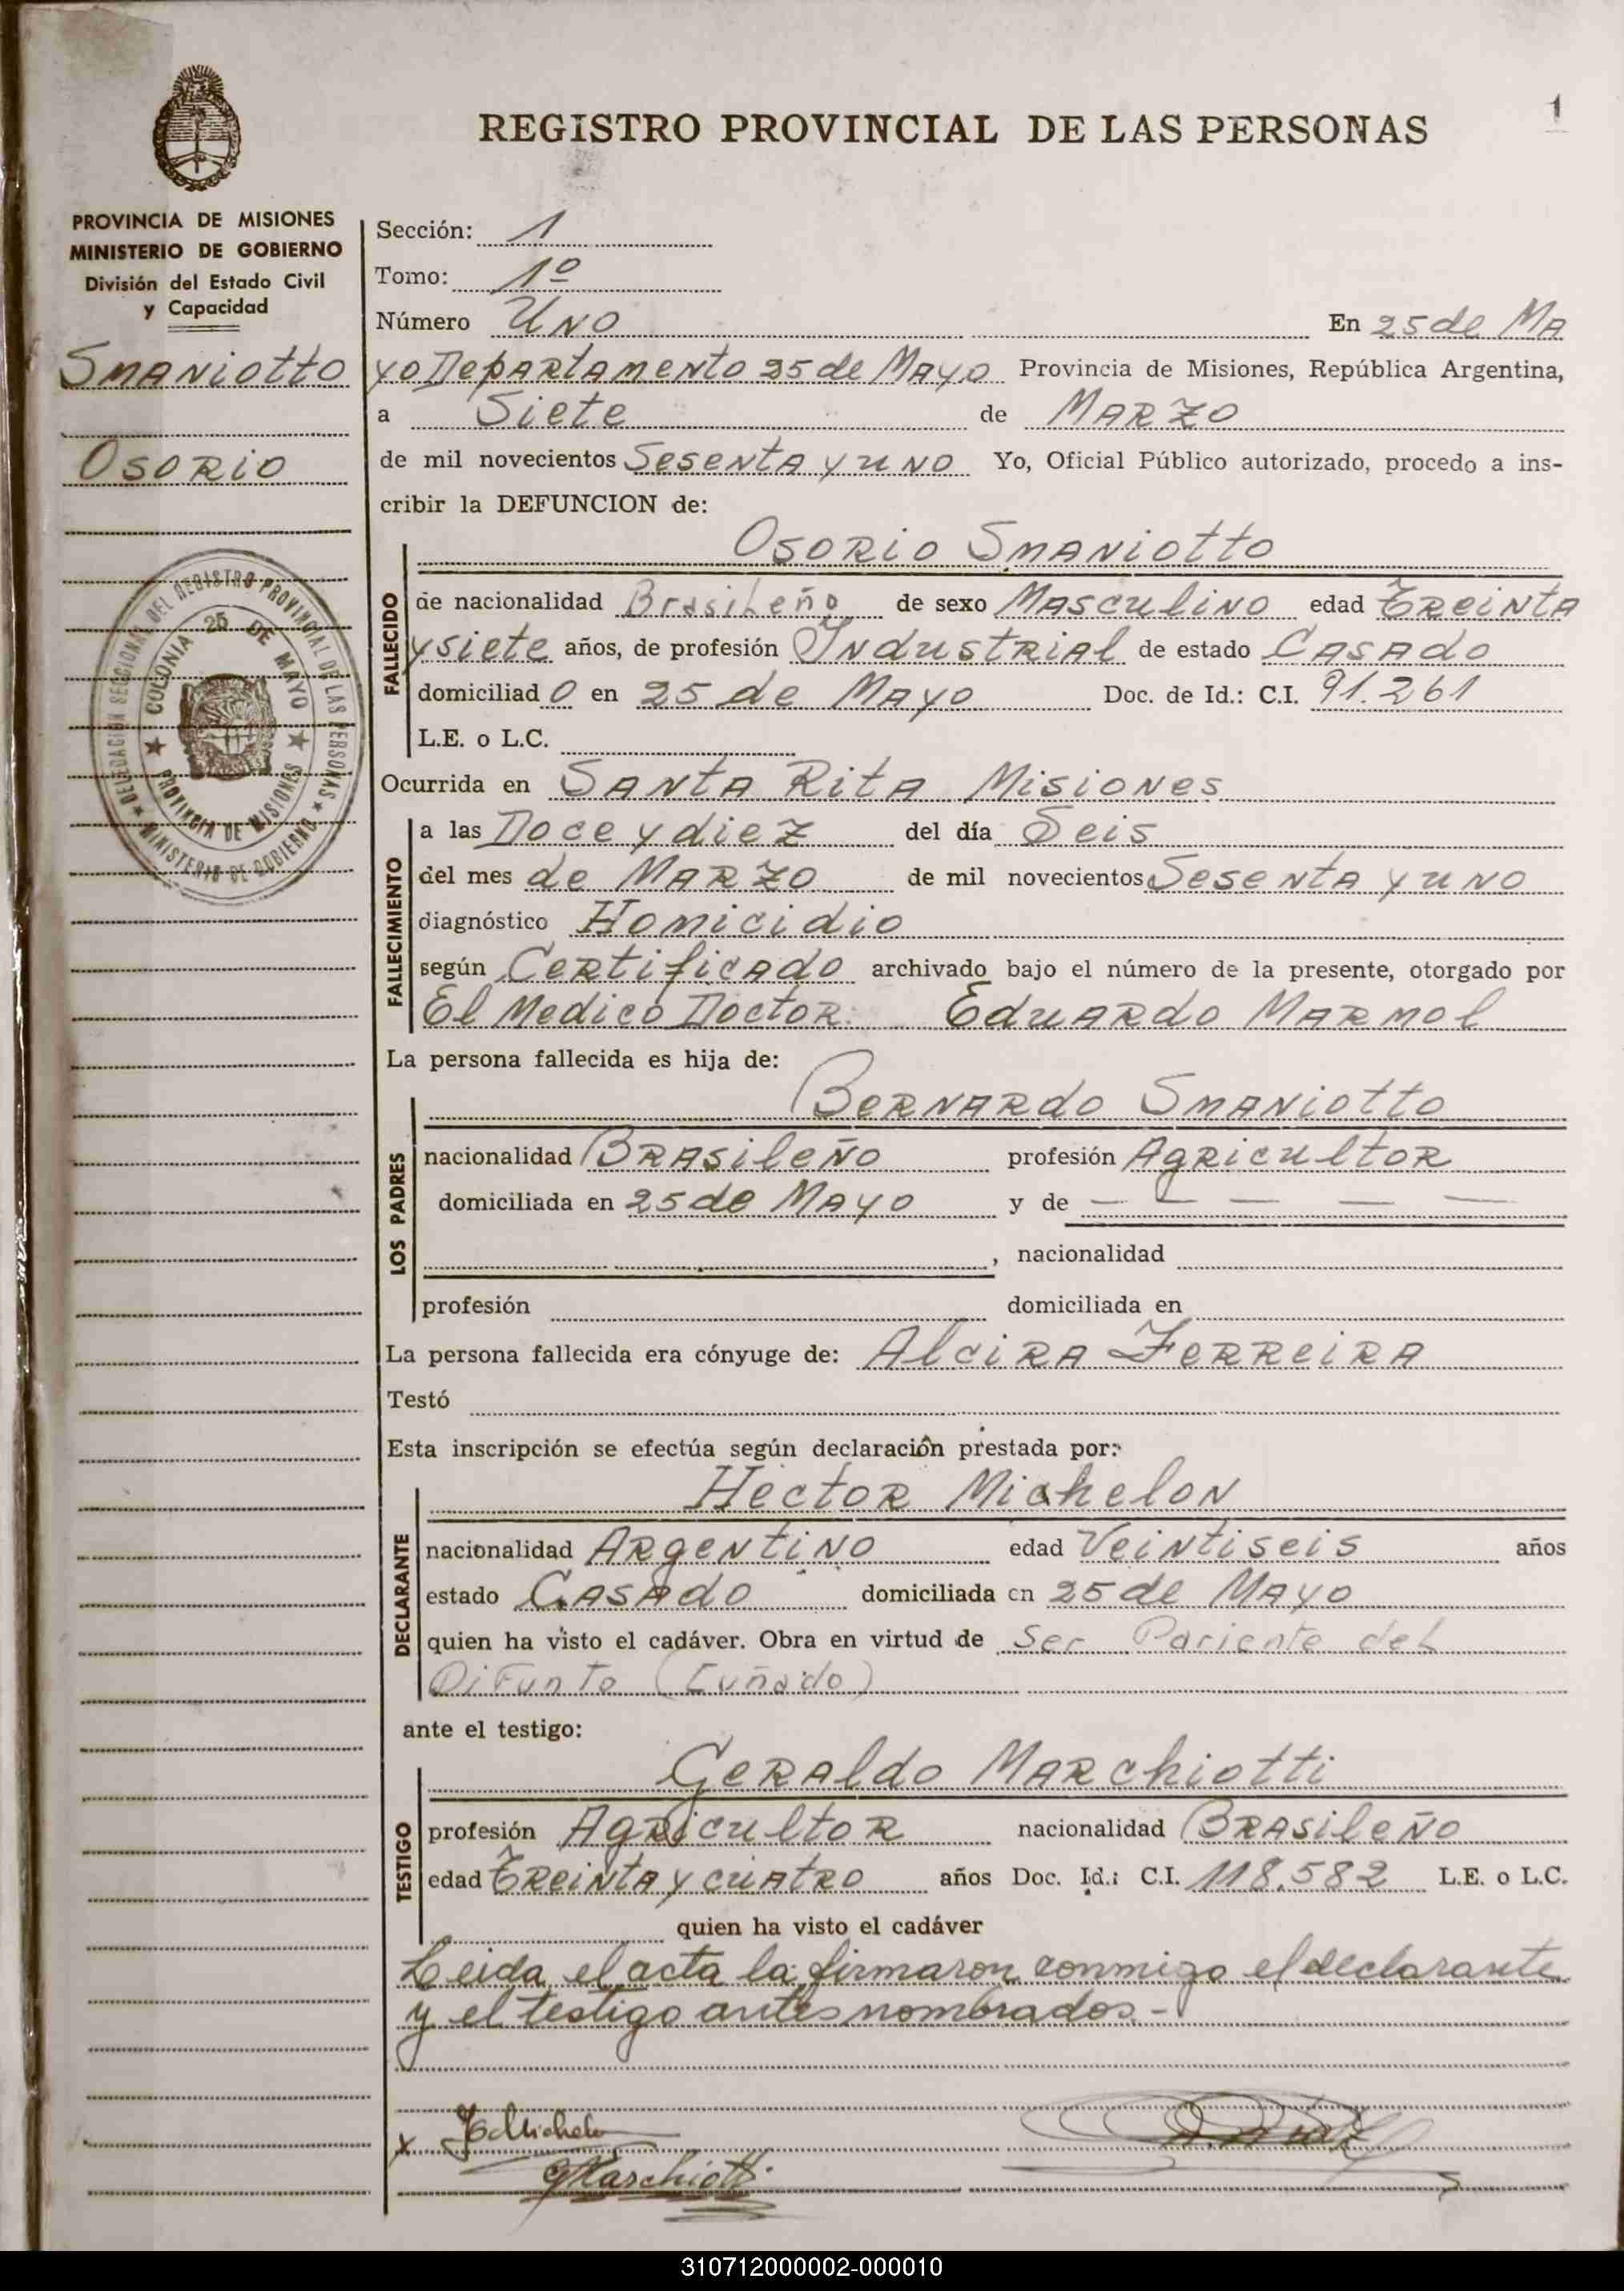 1
REGISTRO PROVINCIAL DE LAS PERSONAS
PROVINCIA DE MISIONES
MINISTERIO DE GOBIERNO
División del Estado Civil
y Capacidad
Smaniotto
Osorio
DELEGACION SECCIONAL DEL REGISTRO PROVINCIAL DE LAS PERSONAS
MINISTERIO DE GOBIERNO
COLONIA 25 DE MAYO
PROVINCIA DE MISIONES
Sección: 1
Tomo: 1º
Número Uno En 25 de Ma
yo Departamento 25 de Mayo Provincia de Misiones, República Argentina,
a Siete de Marzo
de mil novecientos Sesenta y uno Yo, Oficial Público autorizado, procedo a ins-
cribir la DEFUNCION de:
FALLECIDO
Osorio Smaniotto
de nacionalidad Brasileño de sexo Masculino edad Treinta
y siete años, de profesión Industrial de estado Casado
domiciliad o en 25 de Mayo Doc. de Id.: C.I. 91.261
L.E. o L.C.
Ocurrida en Santa Rita Misiones
FALLECIMIENTO
a las Doce y diez del día Seis
del mes de Marzo de mil novecientos Sesenta y uno
diagnóstico Homicidio
según Certificado archivado bajo el número de la presente, otorgado por
El Medico Doctor. Eduardo Marmol
La persona fallecida es hija de:
LOS PADRES
Bernardo Smaniotto
nacionalidad Brasileño profesión Agricultor
domiciliada en 25 de Mayo y de — — — — —
, nacionalidad
profesión domiciliada en
La persona fallecida era cónyuge de: Alcira Ferreira
Testó
Esta inscripción se efectúa según declaración prestada por:
DECLARANTE
Hector Michelon
nacionalidad Argentino edad Veintiseis años
estado Casado domiciliada en 25 de Mayo
quien ha visto el cadáver. Obra en virtud de Ser Pariente del
Difunto (Cuñado)
ante el testigo:
TESTIGO
Geraldo Marchiotti
profesión Agricultor nacionalidad Brasileño
edad Treinta y cuatro años Doc. Id.: C.I. 118.582 L.E. o L.C.
quien ha visto el cadáver
Leida el acta la firmaron conmigo el declarante
y el testigo antes nombrados.-
x
GMarchiotti
310712000002-000010